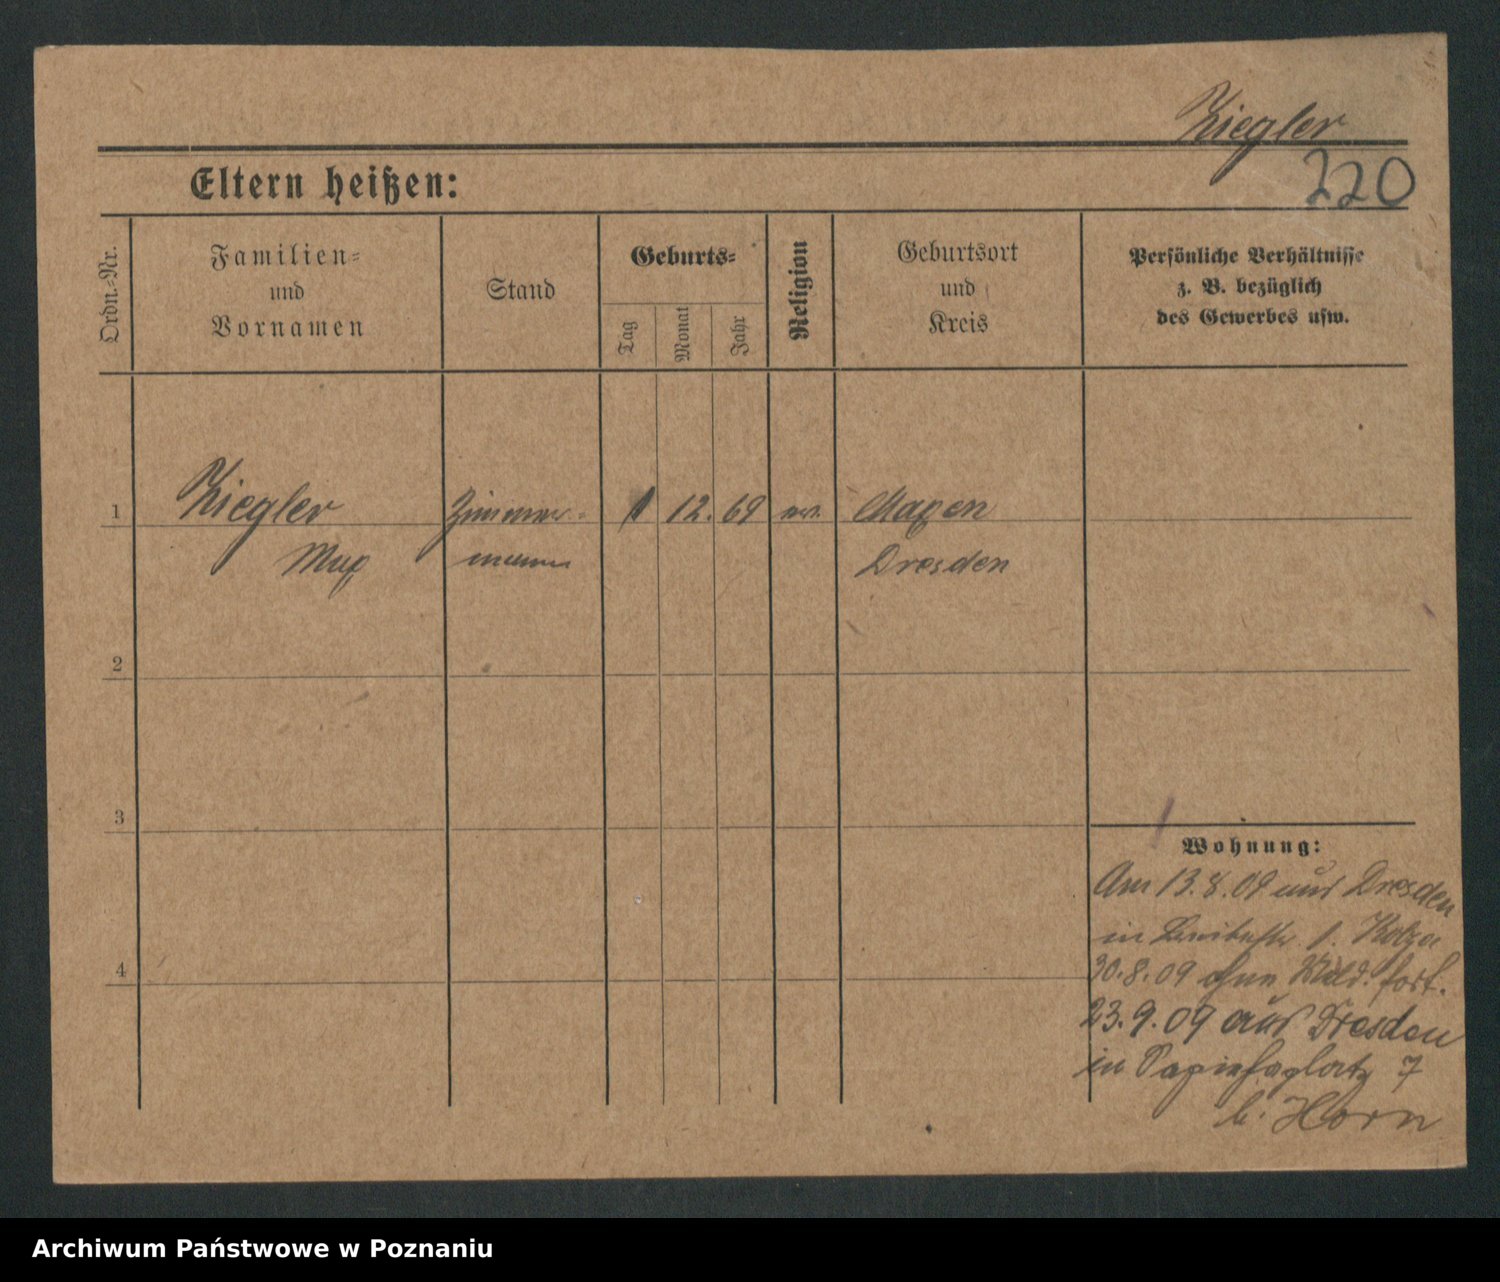 Ziegler
220
Eltern heißen:
Ordn.-Nr.
Familien-
und
Vornamen
Stand
Geburts-
Tag
Monat
Jahr
Religion
Geburtsort
und
Kreis
Persönliche Verhältnisse
z. B. bezüglich
des Gewerbes usw.
1
Ziegler
Max
Zimmer-
mann
12. 69
ev.
Dresden
2
3
4
Wohnung:
Am 13.8.09 aus Dresden
in 1.
30.8.09 ohne Meld. fort.
23.9.09 aus Dresden
in 7
b. Horn
Archiwum Państwowe w Poznaniu